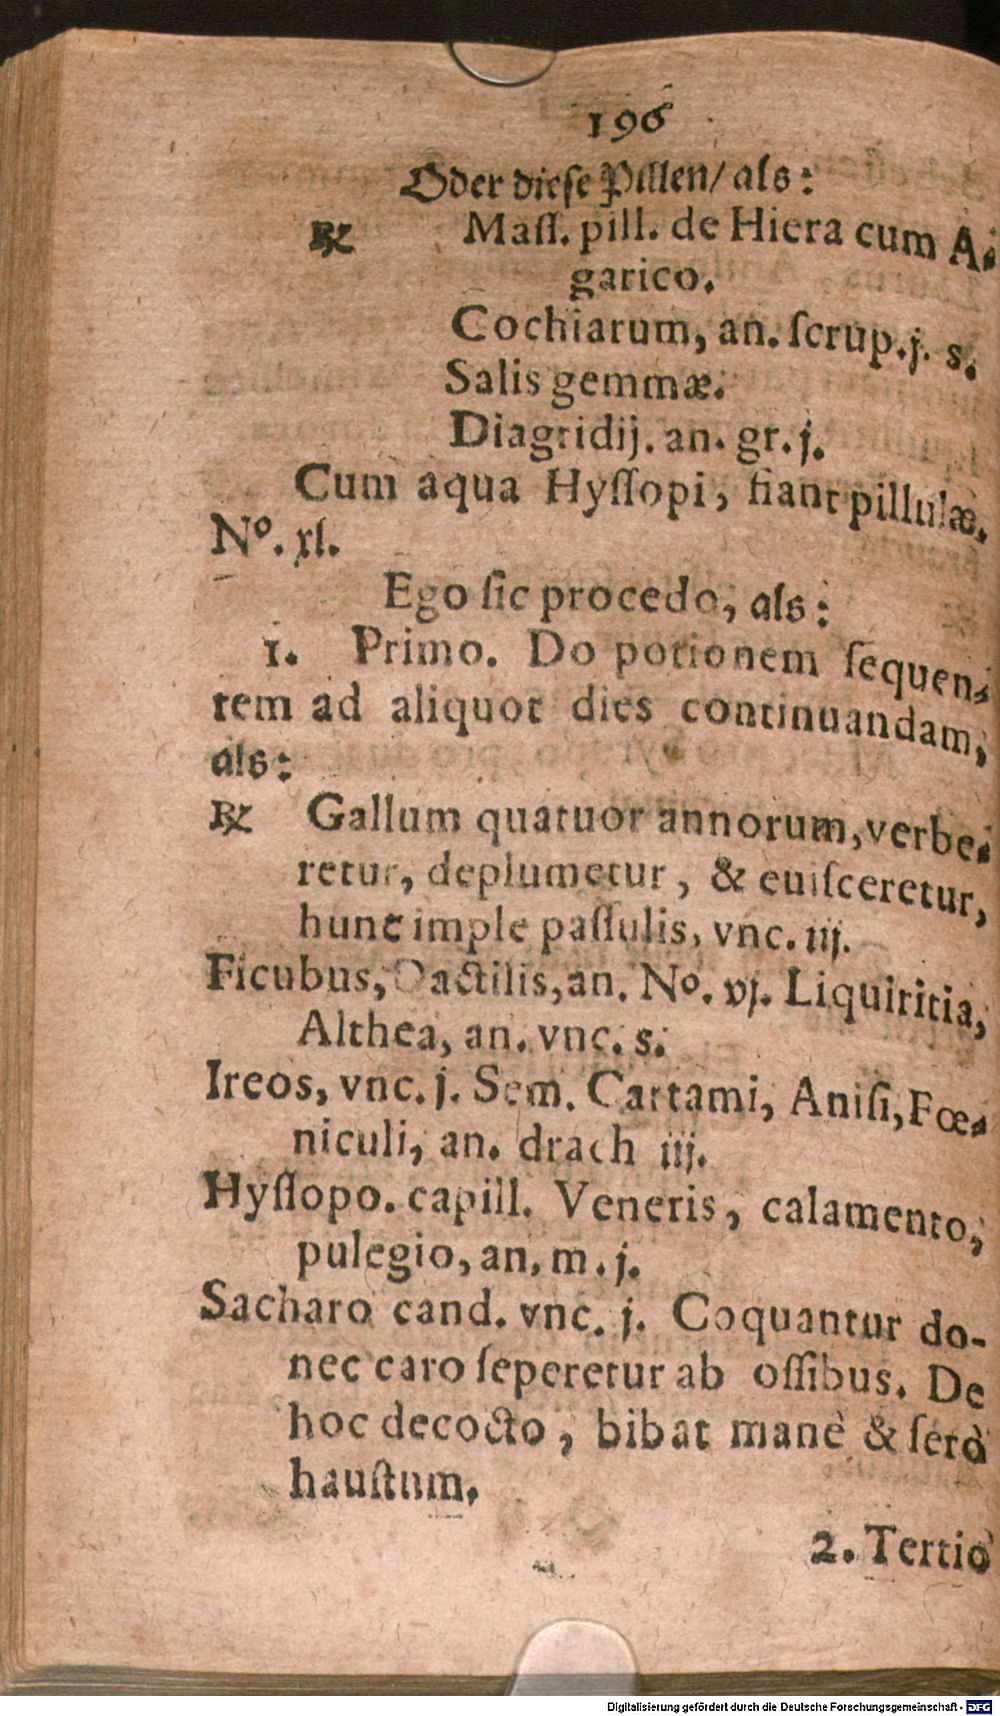 196
Oder diese Pillen/ als:
℞ Maſſ. pill. de Hiera cum A-
garico.
Cochiarum, an. ſcrup. j. s.
Salis gemmæ.
Diagridij. an. gr. j.
Cum aqua Hyſſopi, fiant pillulæ.
Nº. xl.
Ego ſic procedo, als:
1. Primo. Do potionem ſequen-
tem ad aliquot dies continuandam,
als:
℞ Gallum quatuor annorum, verbe-
retur, deplumetur, & euiſceretur,
hunc imple paſſulis, vnc. iij.
Ficubus, Dactilis, an. Nº. vj. Liquiritia,
Althea, an. vnc. s.
Ireos, vnc. j. Sem. Cartami, Aniſi, Fœ-
niculi, an. drach iij.
Hyſſopo. capill. Veneris, calamento,
pulegio, an. m. j.
Sacharo cand. vnc. j. Coquantur do-
nec caro ſeperetur ab oſſibus. De
hoc decocto, bibat manè & ſerò
hauſtum.
2. Tertiò
Digitalisierung gefördert durch die Deutsche Forschungsgemeinschaft - DFG